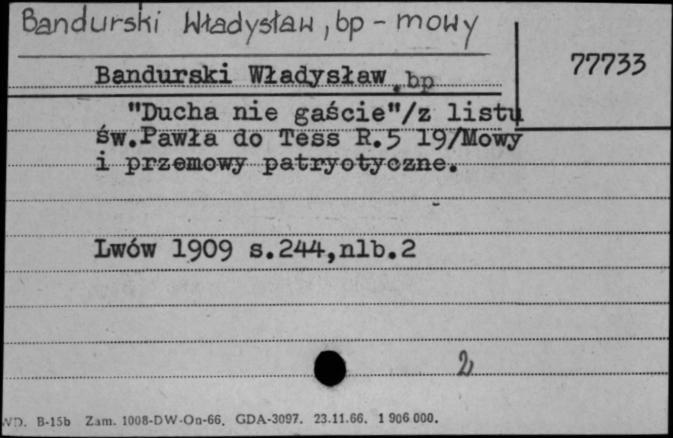 Bandurski Władysław, bp - mowy
77733
Bandurski Władysław, bp
"Ducha nie gaście"/z listu
św.Pawła do Tess R.5 19/Mowy
i przemowy patryotyczne.
Lwów 1909 s.244,nlb.2
2
WD. B-15b Zam. 1008-DW-On-66. GDA-3097. 23.11.66. 1 906 000.